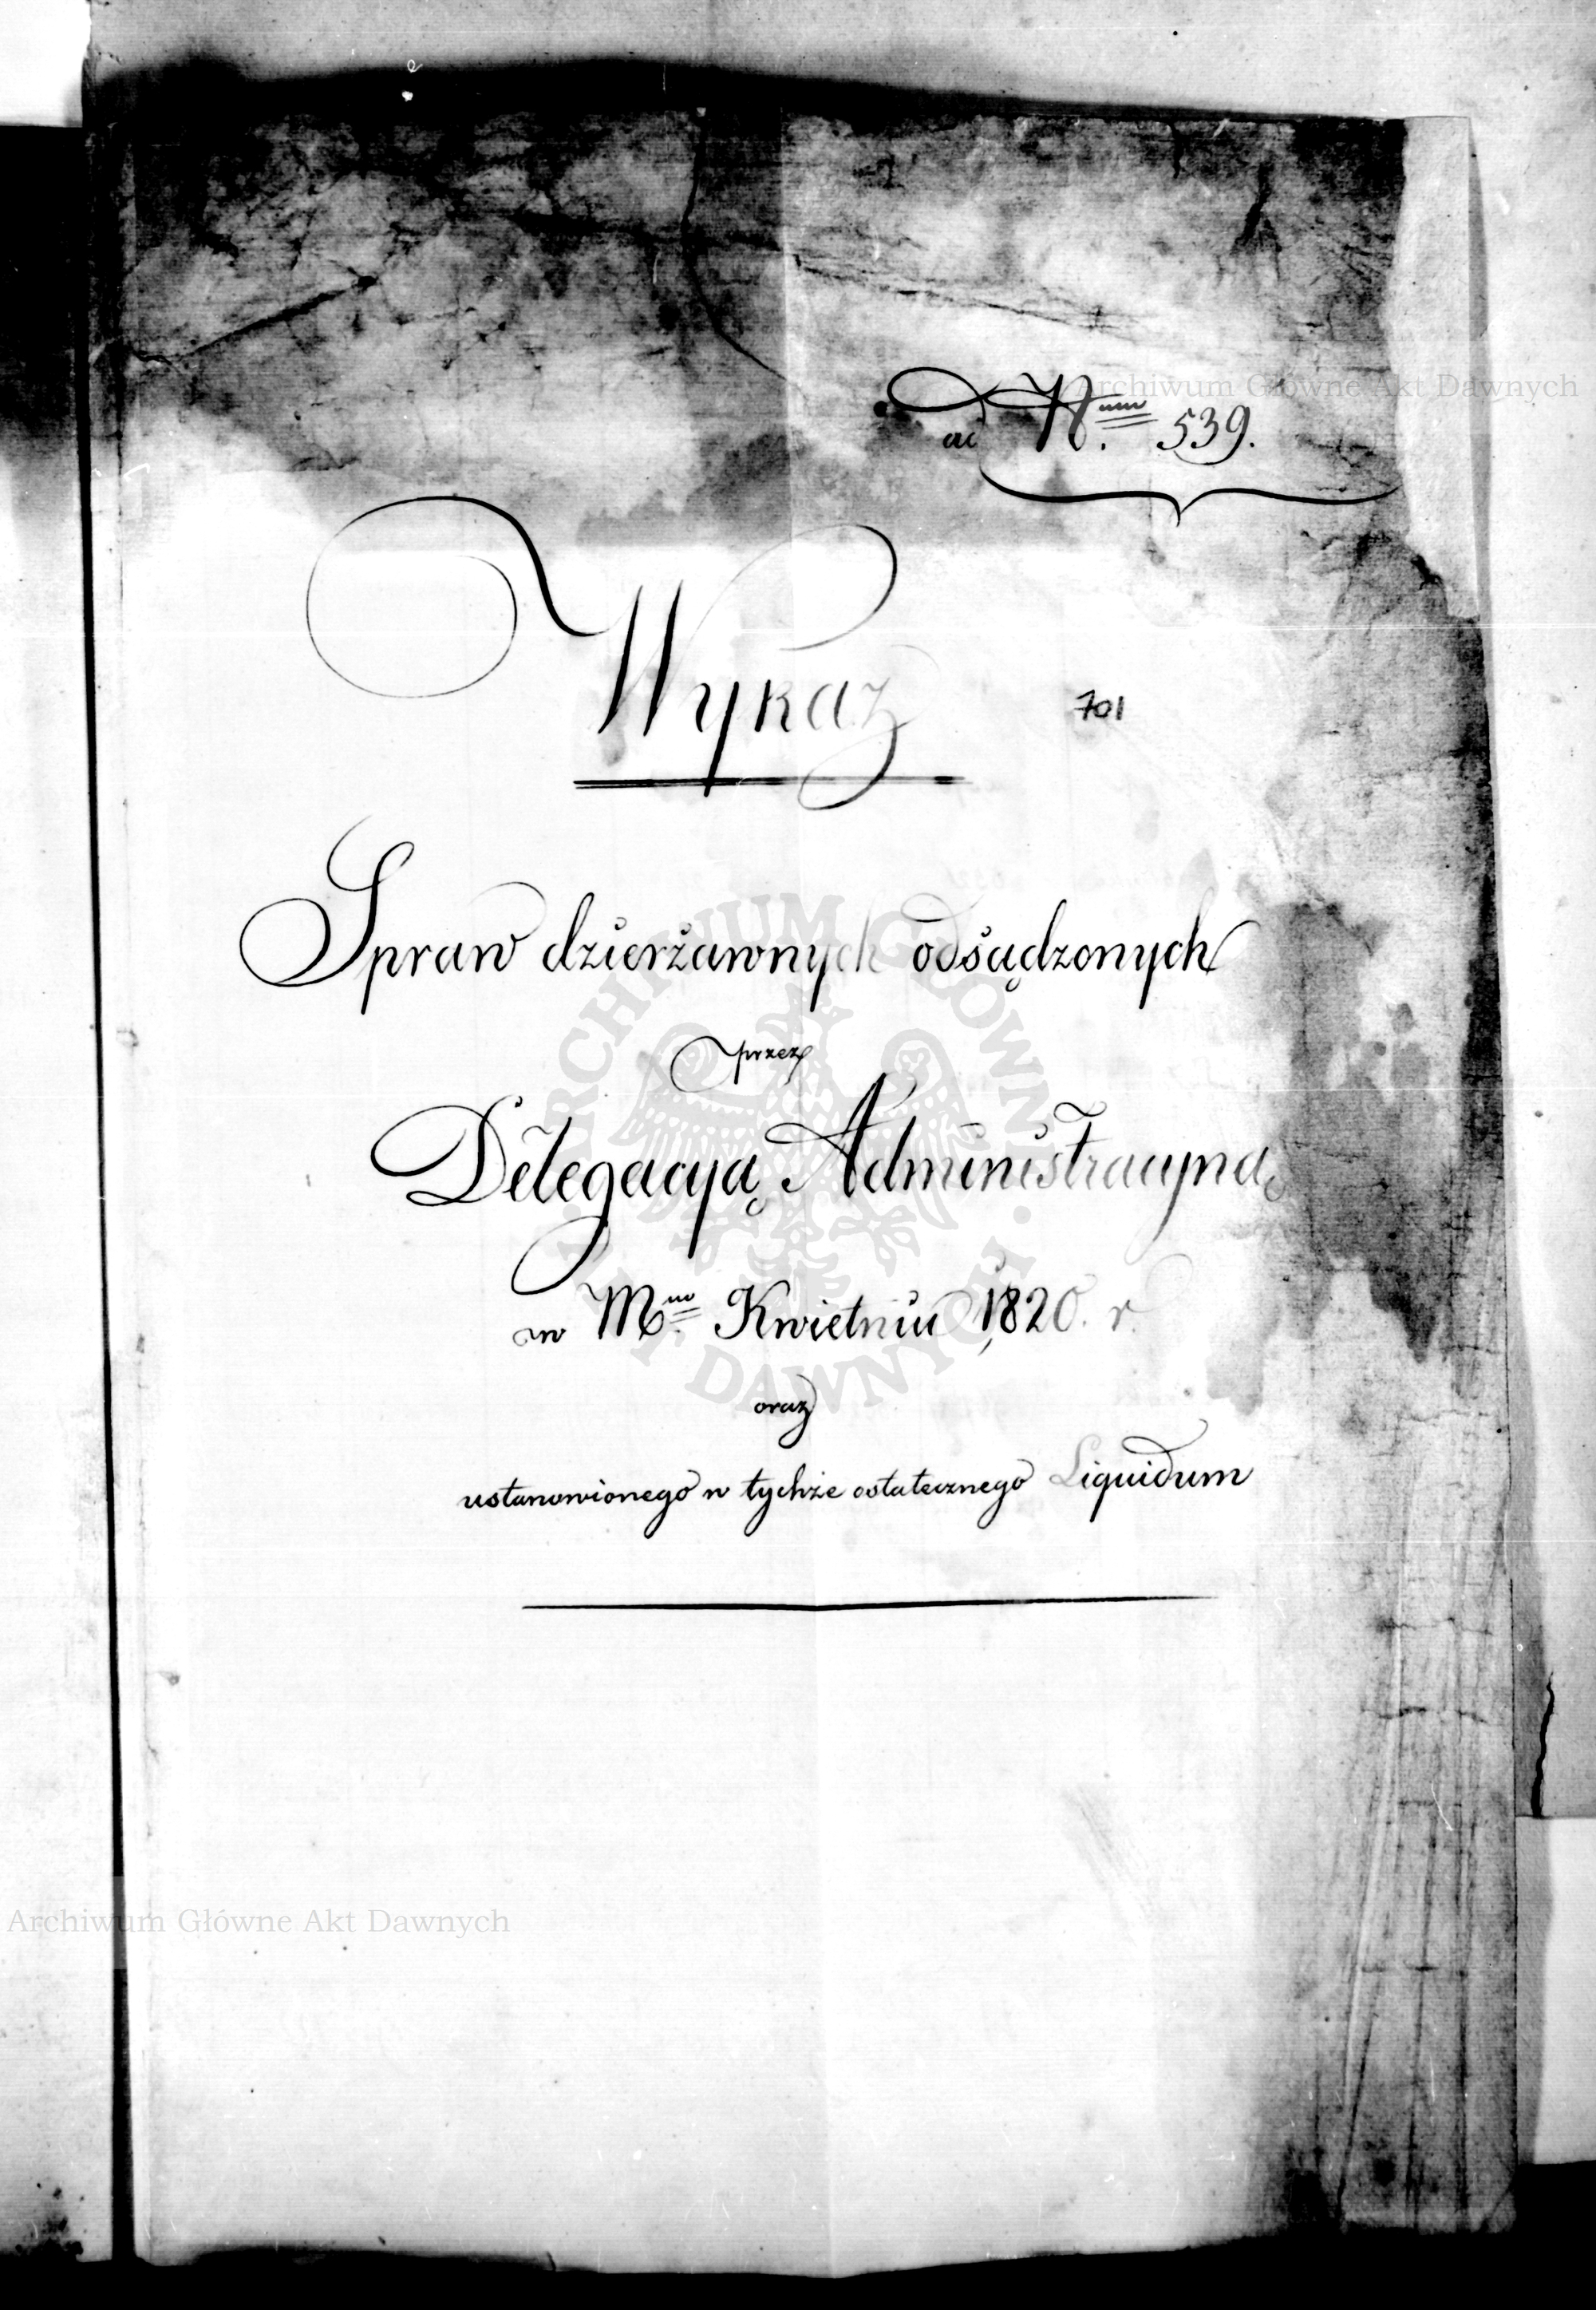 Archiwum Główne Akt Dawnych
ad N.um 539.
Wykaz
701
Spraw dzierżawnych odsądzonych
przez
Delegacyą Administracyiną
w M.cu Kwietniu 1820. r.
oraz
ustanowionego w tychże ostatecznego Liquidum
ARCHIWUM GŁÓWNE
AKT DAWNYCH
Archiwum Główne Akt Dawnych